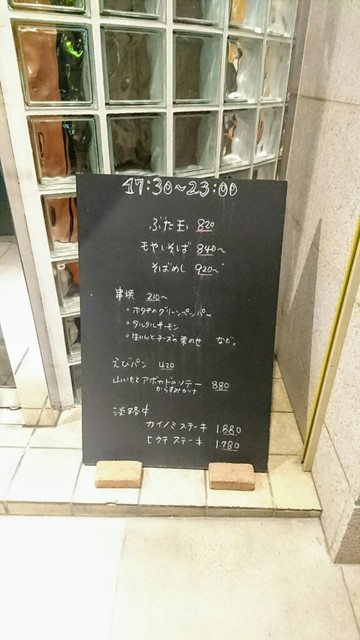 17:30~23:00
ぶた玉 820
もやしそば 840~
そばめし 920~
串焼 210~
・ホタテのグリーンペッパー
・タルタルサーモン
・生ハムとチーズの 乗のせ など。
えびパン 420
山いもとアボカドのソテー 880
からすみかけ
淡路牛
カイノミステーキ 1.880
ヒウチステーキ 1.780